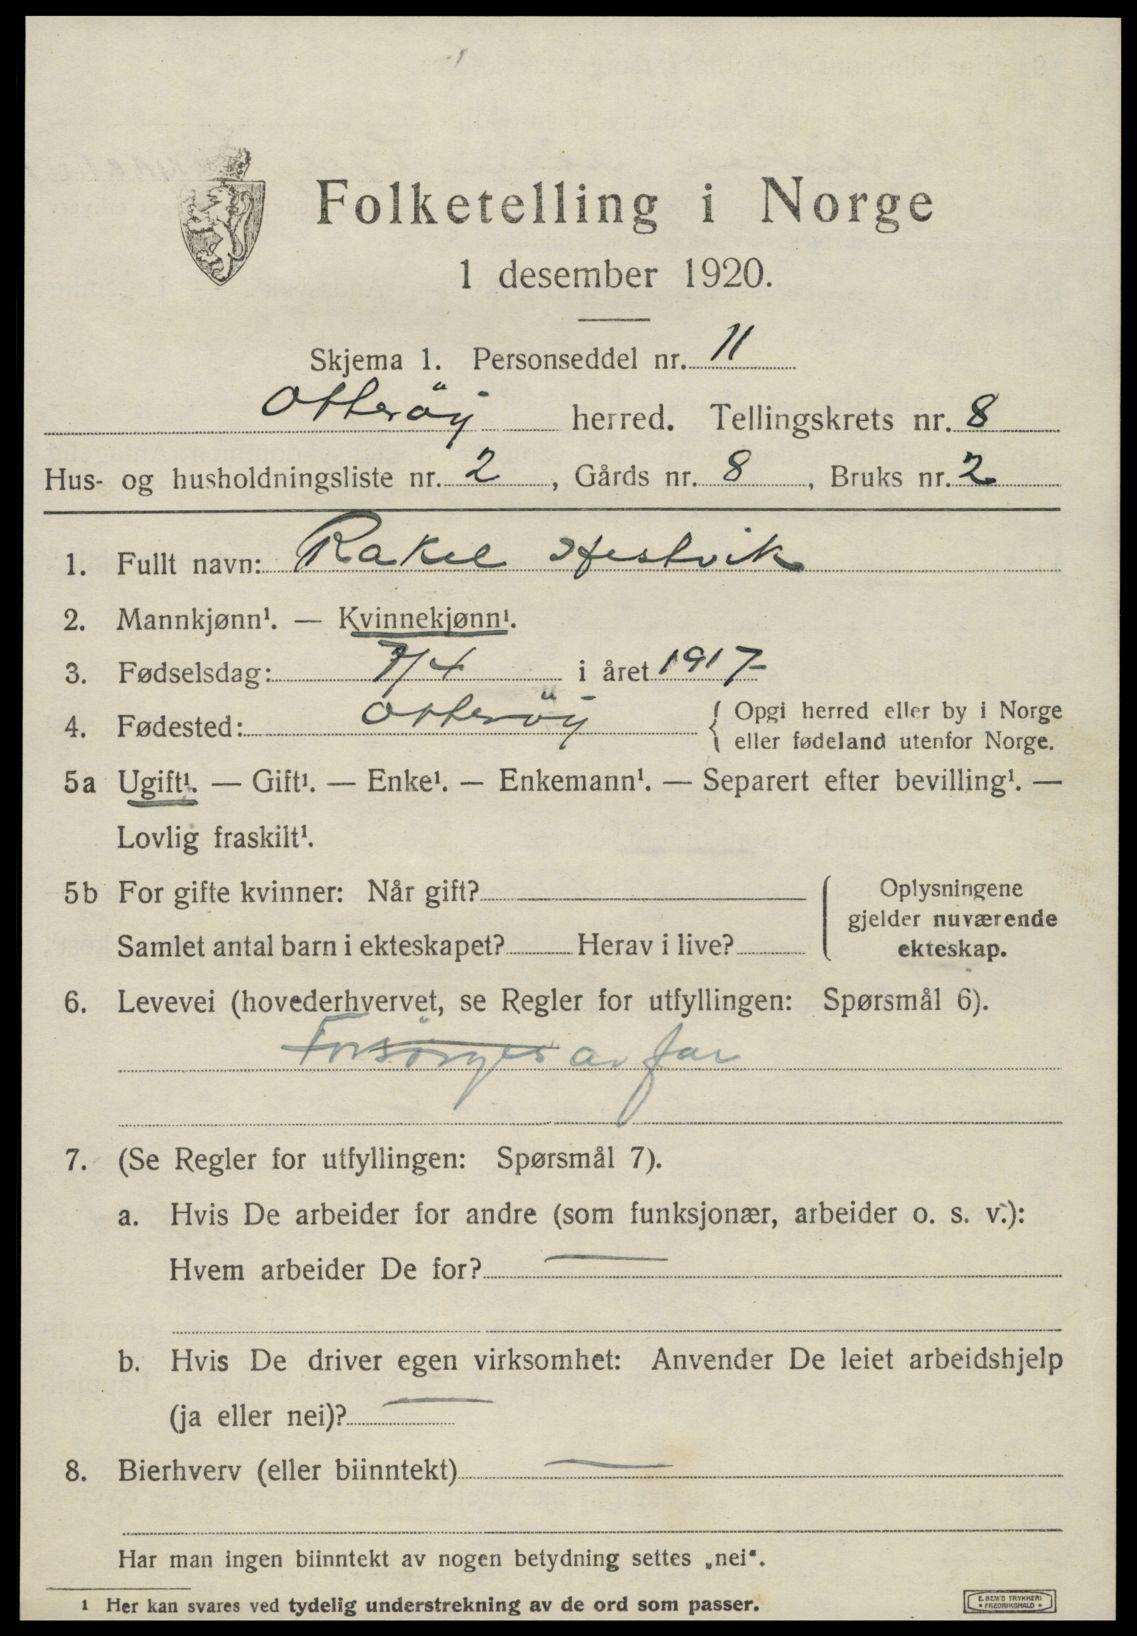 Folketelling i Norge
1 desember 1920.
Skjema 1. Personseddel nr. 11
Otterøy herred. Tellingskrets nr. 8
Hus- og husholdningsliste nr. 2, Gårds nr. 8, Bruks nr. 2
1. Fullt navn: Rakel Hestvik
2. Mannkjønn¹. — Kvinnekjønn¹.
3. Fødselsdag: 7/4 i året 1917
4. Fødested: Otterøy { Opgi herred eller by i Norge
eller fødeland utenfor Norge.
5a Ugift¹. — Gift¹. — Enke¹. — Enkemann¹. — Separert efter bevilling¹. —
Lovlig fraskilt¹.
5b For gifte kvinner: Når gift?
Samlet antal barn i ekteskapet? Herav i live?
Oplysningene
gjelder nuværende
ekteskap.
6. Levevei (hovederhvervet, se Regler for utfyllingen: Spørsmål 6).
Forsørges av far
7. (Se Regler for utfyllingen: Spørsmål 7).
a. Hvis De arbeider for andre (som funksjonær, arbeider o. s. v.):
Hvem arbeider De for? —
b. Hvis De driver egen virksomhet: Anvender De leiet arbeidshjelp
(ja eller nei)? —
8. Bierhverv (eller biinntekt) —
Har man ingen biinntekt av nogen betydning settes „nei".
¹ Her kan svares ved tydelig understrekning av de ord som passer.
E. SEM'S TRYKKERI
FREDRIKSHALD